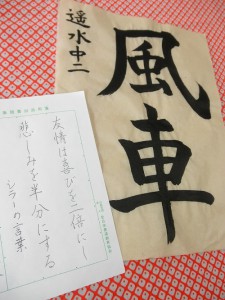 風車
遥水中二
友情は喜びを二倍にし
悲しみを半分にする
シラーの言葉